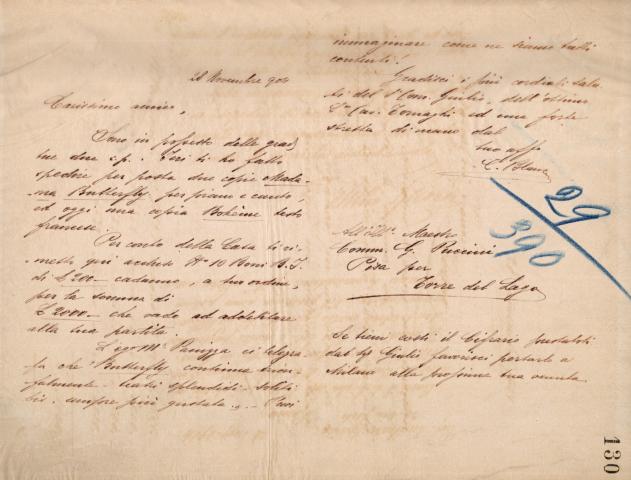 28 Novembre 904
Carissimo amico,
Sono in possesso delle grad.
tue due c.p. Ieri ti ho fatto
spedire per posta due copie Mada-
ma Butterfly per piano e canto,
ed oggi una copia Bohème testo
francese.
Per conto della Casa ti ri-
metto qui accluso No 10 Boni B. I.
di £ 200 - cadauno, a tuo ordine,
per la somma di
£ 2000 - che vado ad addebitare
alla tua partita.
Mo Panizza ci telegra-
fa che Butterfly continua trion-
falmente - teatri splendidi - soliti
bis - sempre più gustata ... Puoi
immaginare come ne siamo tutti
contenti!
Gradisci i più cordiali salu-
ti del Sr Com. Giulio, dell'ottimo
Sr Cav. Tornaghi ed una forte
stretta di mano dal
tuo aff
C. Blanc
29
390
All'Ill. Maestro
Comm. G. Puccini
Pisa per
Torre del Lago
Se tieni costì il Cifrario prestatoti
dal Sig Giulio favorisci portarlo a
Milano alla prossima tua venuta
130